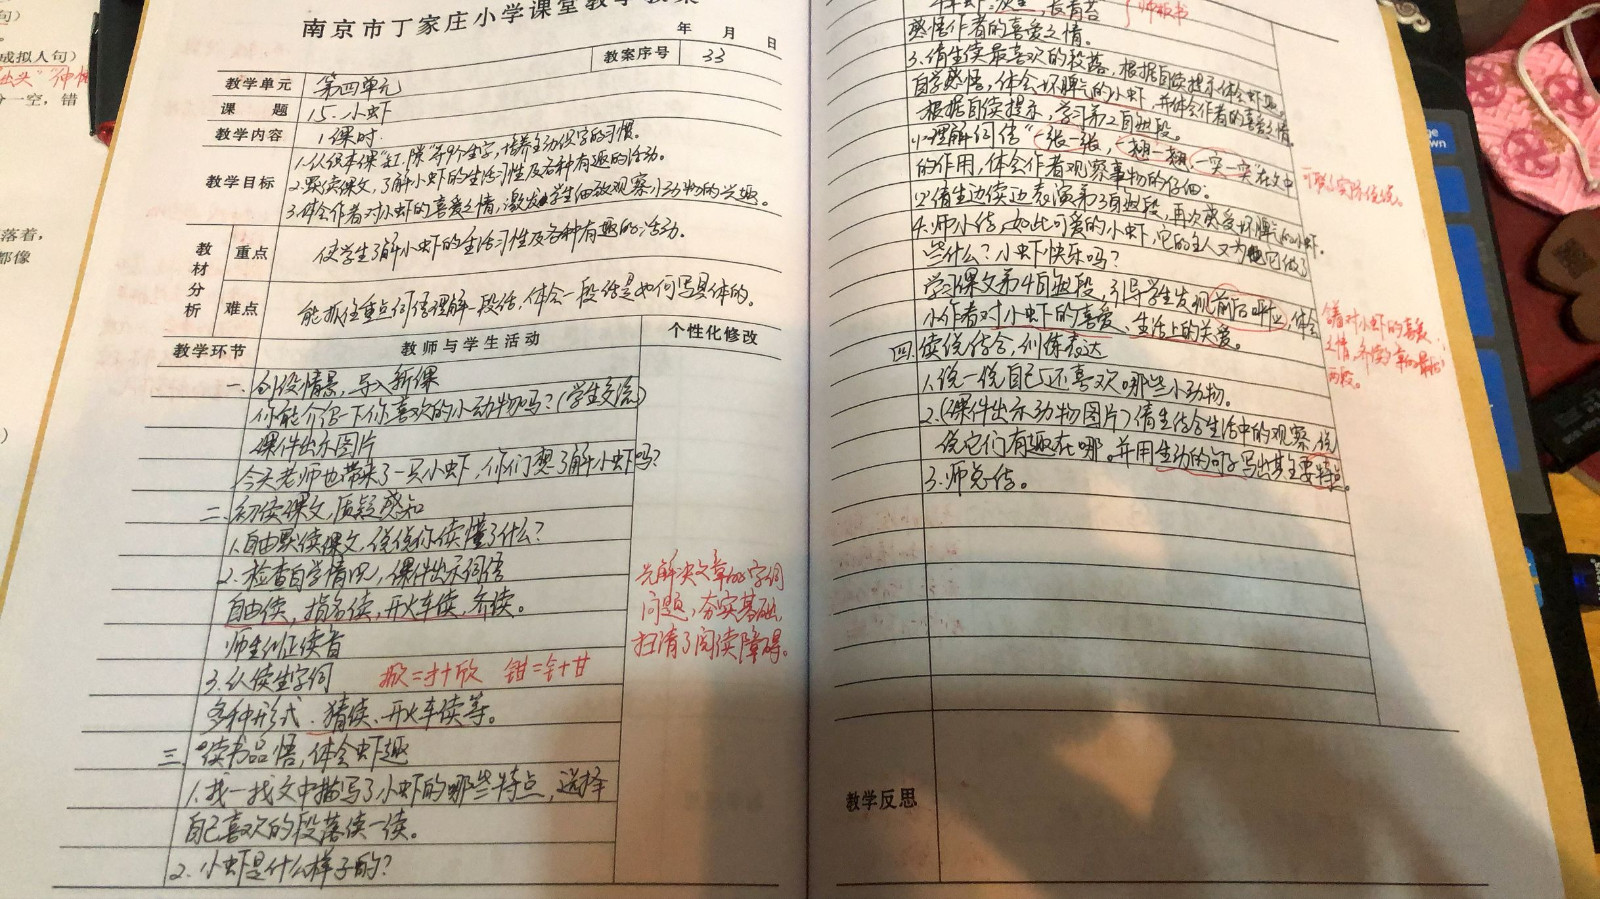 南京市丁家庄小学课堂教学教案
年 月 日
教案序号 33
教学单元 第四单元
课 题 15.小虾
教学内容 1课时.
教学目标
1.认识本课"缸、隙"等9个生字,培养主动识字的习惯。
2.默读课文,了解小虾的生活习性及各种有趣的活动。
3.体会作者对小虾的喜爱之情,激发学生细致观察小动物的兴趣。
教材分析
重点 使学生了解小虾的生活习性及各种有趣的活动.
难点 能抓住重点词语理解一段话,体会一段话是如何写具体的。
教学环节 教师与学生活动 个性化修改
一.创设情景,导入新课
你能介绍一下你喜欢的小动物吗?(学生交流)
课件出示图片
今天老师也带来了一只小虾,你们想了解小虾吗?
二.初读课文,质疑感知
1.自由默读课文,说说你读懂了什么?
2.检查自学情况,课件出示词语
自由读,指名读,开火车读,齐读。
师生纠正读音
3.认读生字词
掀=扌+欣 钳=钅+甘
多种形式、猜读、开火车读等。
先解决文章的字词
问题,夯实基础,
扫清了阅读障碍。
三.读书品悟,体会虾趣
1.找一找文中描写了小虾的哪些特点,选择
自己喜欢的段落读一读。
2.小虾是什么样子的?
长青苔
感悟作者的喜爱之情。
3.请生读最喜欢的段落,根据自读提示体会虾趣。
自学感悟,体会坏脾气的小虾,并体会作者的喜爱之情
根据自读提示,学习第2自然段。
(1)理解词语"一张一张,一翘一翘,一突一突"在文中
的作用,体会作者观察事物的仔细;
可联系实际体会。
(2)请生边读边表演第3自然段,再次感受坏脾气的小虾.
4.师小结,如此可爱的小虾,它的主人又为它做了
些什么?小虾快乐吗?
学习课文第4自然段,引导学生发现前后呼应,体会
小作者对小虾的喜爱、生活上的关爱。
含着对小虾的喜爱
之情,齐读文章的最后
两段。
四.读说结合,训练表达
1.说一说自己还喜欢哪些小动物。
2.(课件出示动物图片)请生结合生活中的观察,说
说它们有趣在哪。并用生动的句子写出其主要特点。
3.师总结。
教学反思